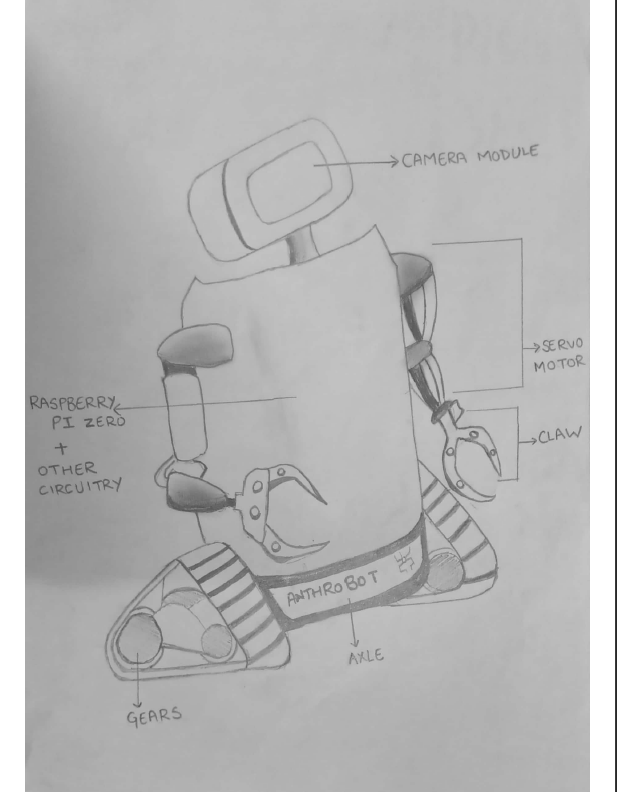 CAMERA MODULE
SERVO
MOTOR
RASPBERRY
PI ZERO
+
OTHER
CIRCUITRY
CLAW
ANTHROBOT
AXLE
GEARS